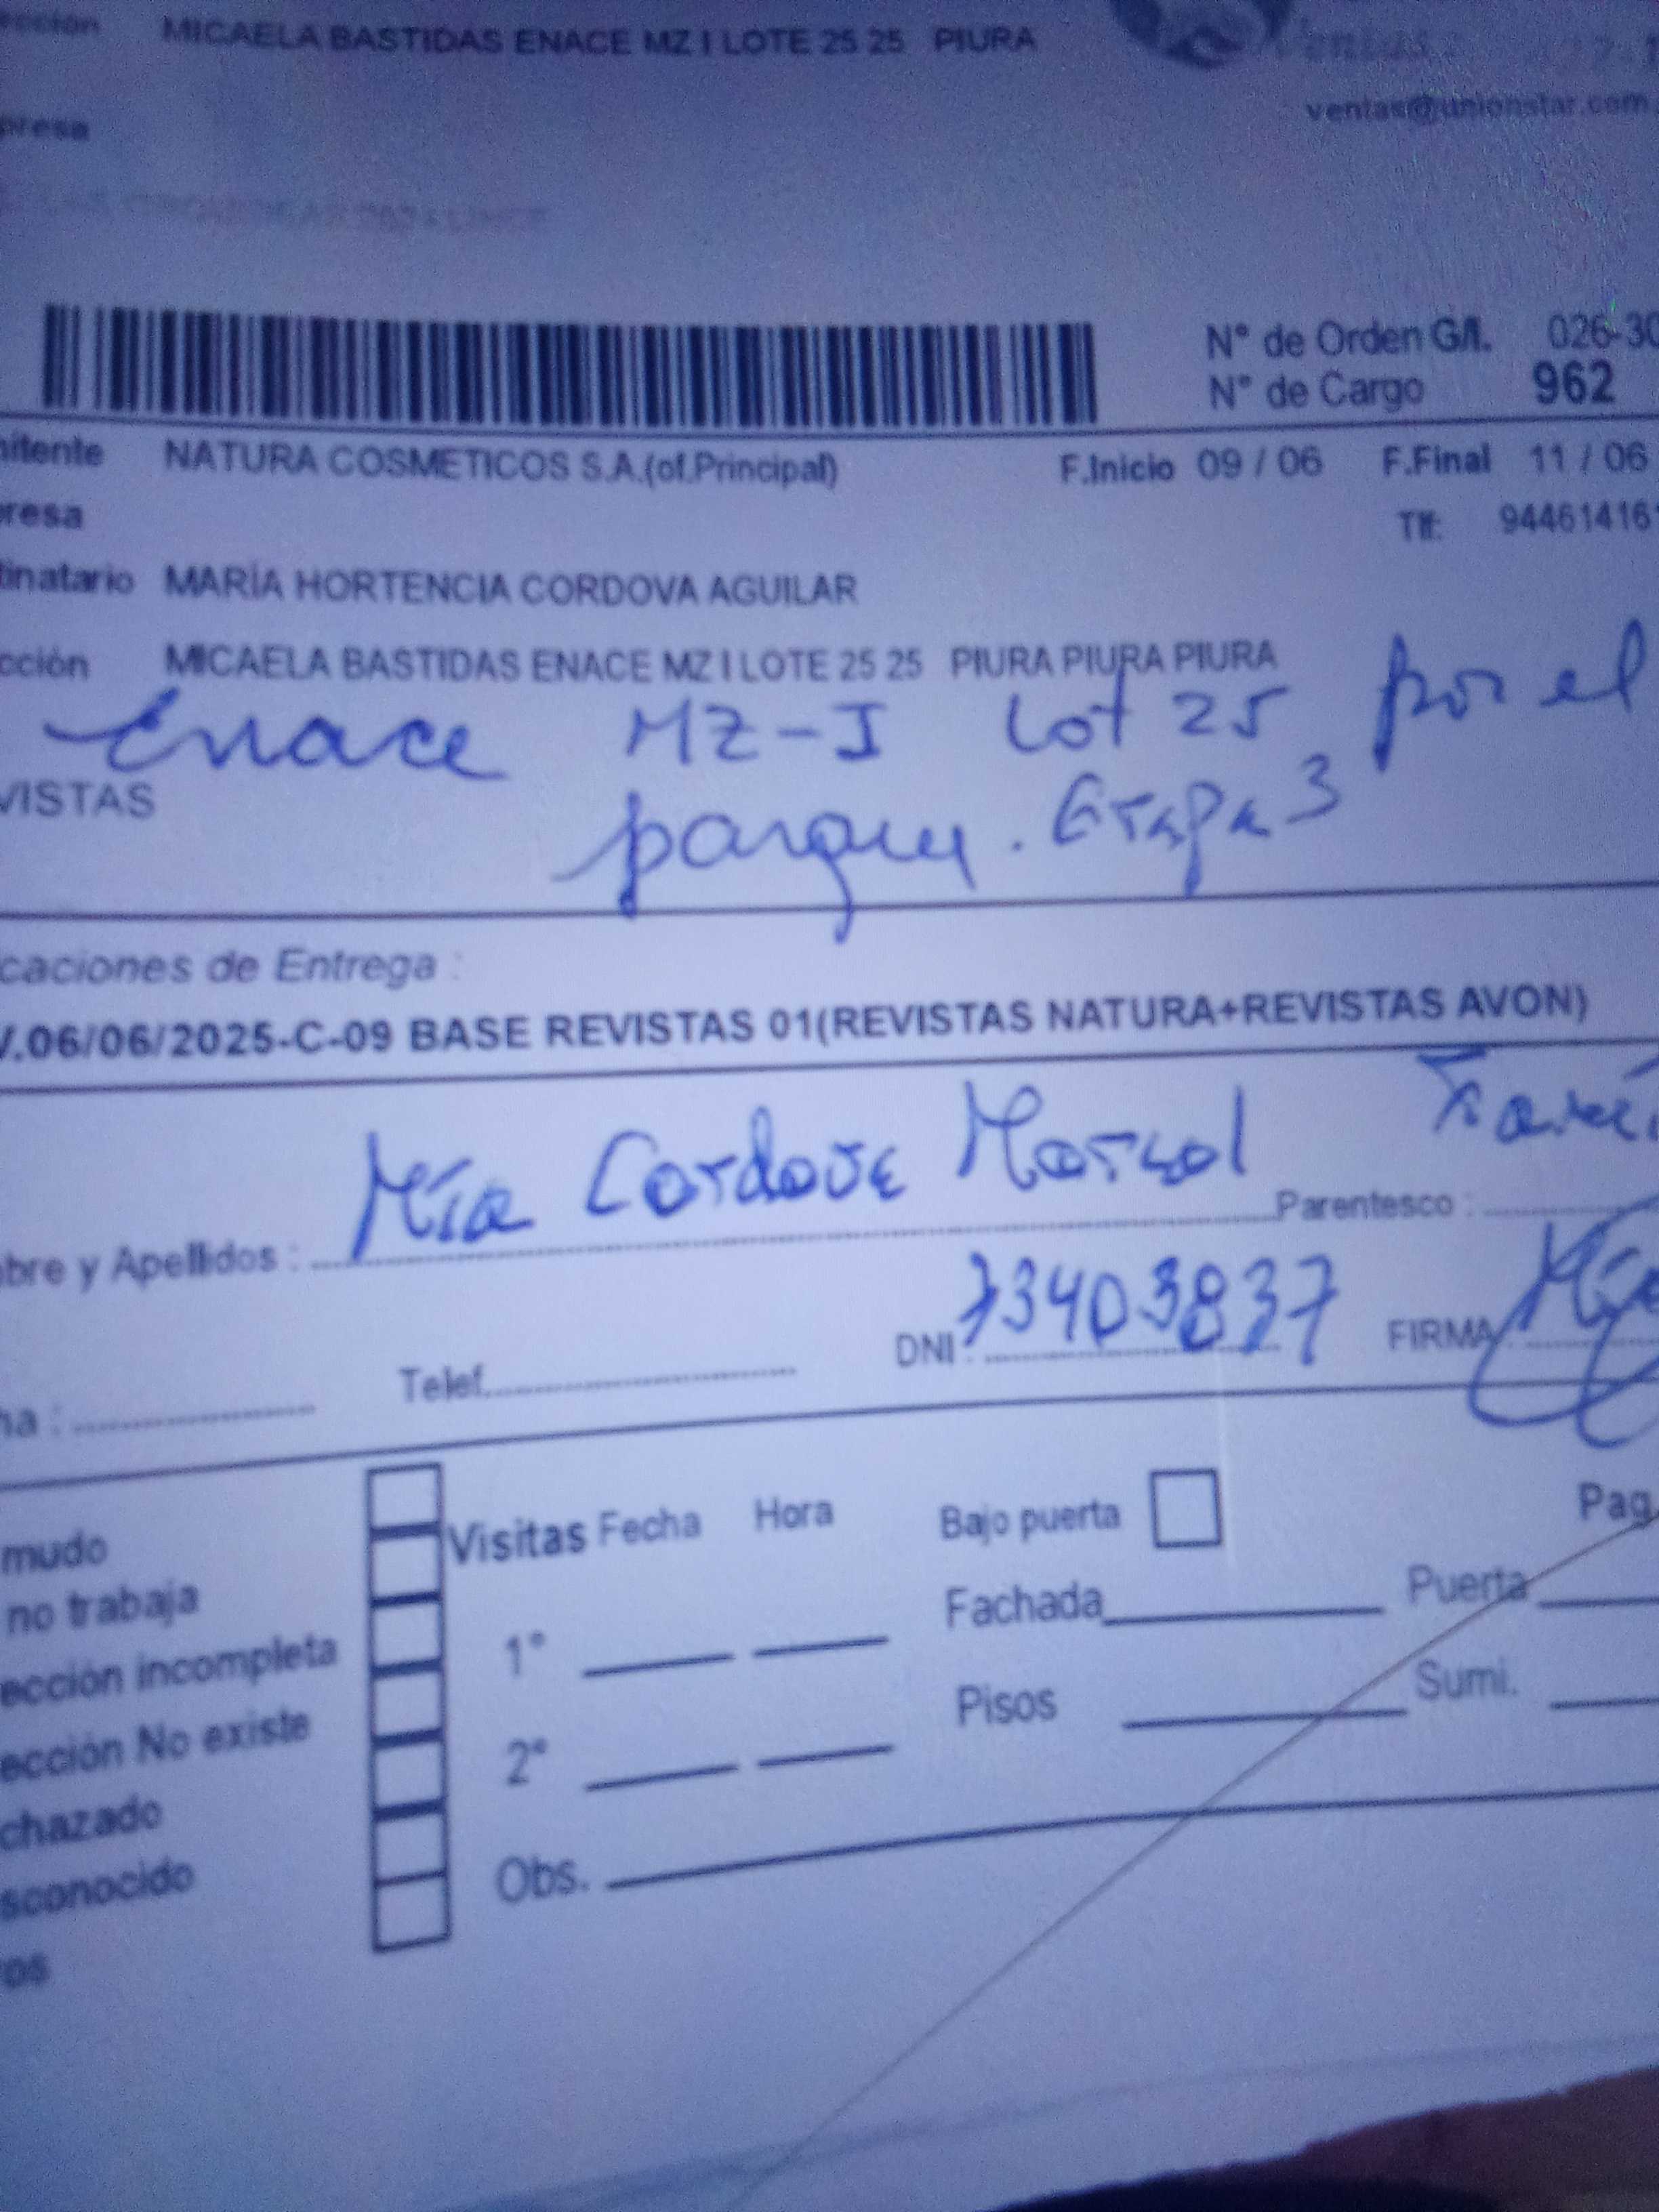 cción MICAELA BASTIDAS ENACE MZ I LOTE 25 25 PIURA
Ventas
ventas@unionstar.com.
presa
N° de Orden G/I. 026-30
N° de Cargo 962
nitente NATURA COSMETICOS S.A.(of.Principal) F.Inicio 09 / 06 F.Final 11 / 06
resa Tlf: 94461416
tinatario MARÍA HORTENCIA CORDOVA AGUILAR
cción MICAELA BASTIDAS ENACE MZ I LOTE 25 25 PIURA PIURA PIURA
Enace MZ-I Lot 25 por el
VISTAS parque. Etapa 3
caciones de Entrega :
V.06/06/2025-C-09 BASE REVISTAS 01(REVISTAS NATURA+REVISTAS AVON)
bre y Apellidos : Mía Cordova Parentesco :
DNI : 73403837 FIRMA
ha : Telef.
mudo Visitas Fecha Hora Bajo puerta Pag.
no trabaja Fachada Puerta
ección incompleta 1°
Pisos Sumi.
ección No existe 2°
chazado
sconocido Obs.
ros